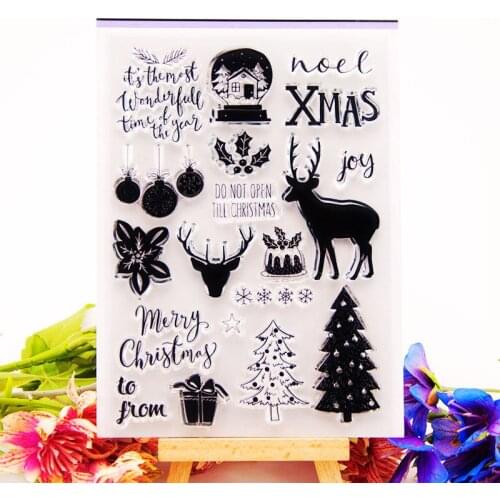 it's the most
Wonderfull
time of
the year
noel
XMAS
joy
DO NOT OPEN
TILL CHRISTMAS
Merry
Christmas
to
from